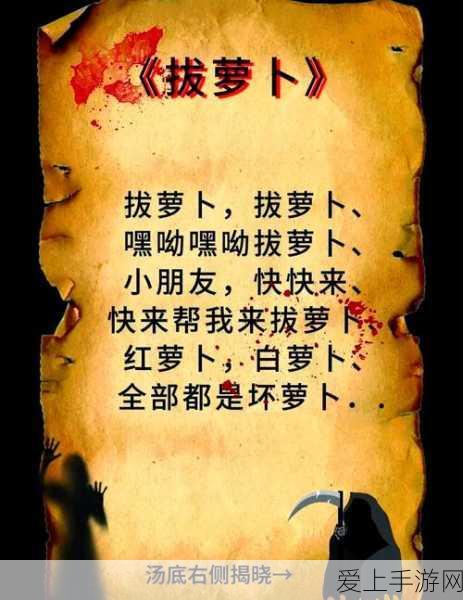 《拔萝卜》
拔萝卜，拔萝卜、
嘿呦嘿呦拔萝卜、
小朋友，快快来、
快来帮我来拔萝卜、
红萝卜，白萝卜、
全部都是坏萝卜．．
汤底右侧揭晓→
爱上手游网